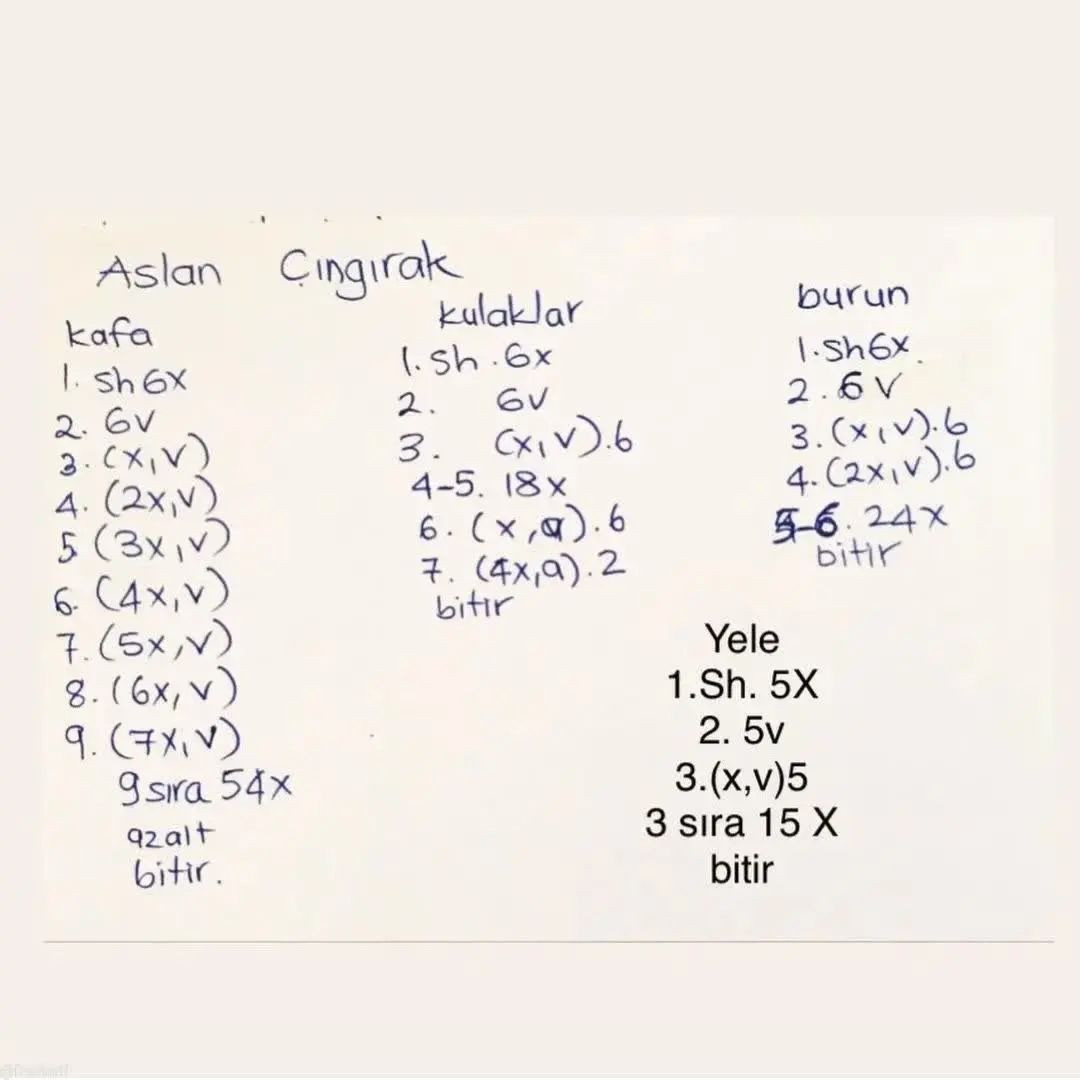 Aslan Çıngırak
kafa
1. sh 6x
2. 6v
3. (x,v)
4. (2x,v)
5 (3x,v)
6. (4x,v)
7. (5x,v)
8. (6x,v)
9. (7x,v)
9 sıra 54x
azalt
bitir.
kulaklar
1. sh . 6x
2. 6v
3. (x,v).6
4-5. 18x
6. (x,a).6
7. (4x,a).2
bitir
burun
1.sh6x.
2. 6v
3. (x,v).6
4. (2x,v).6
5-6. 24x
bitir
Yele
1.Sh. 5X
2. 5v
3.(x,v)5
3 sıra 15 X
bitir